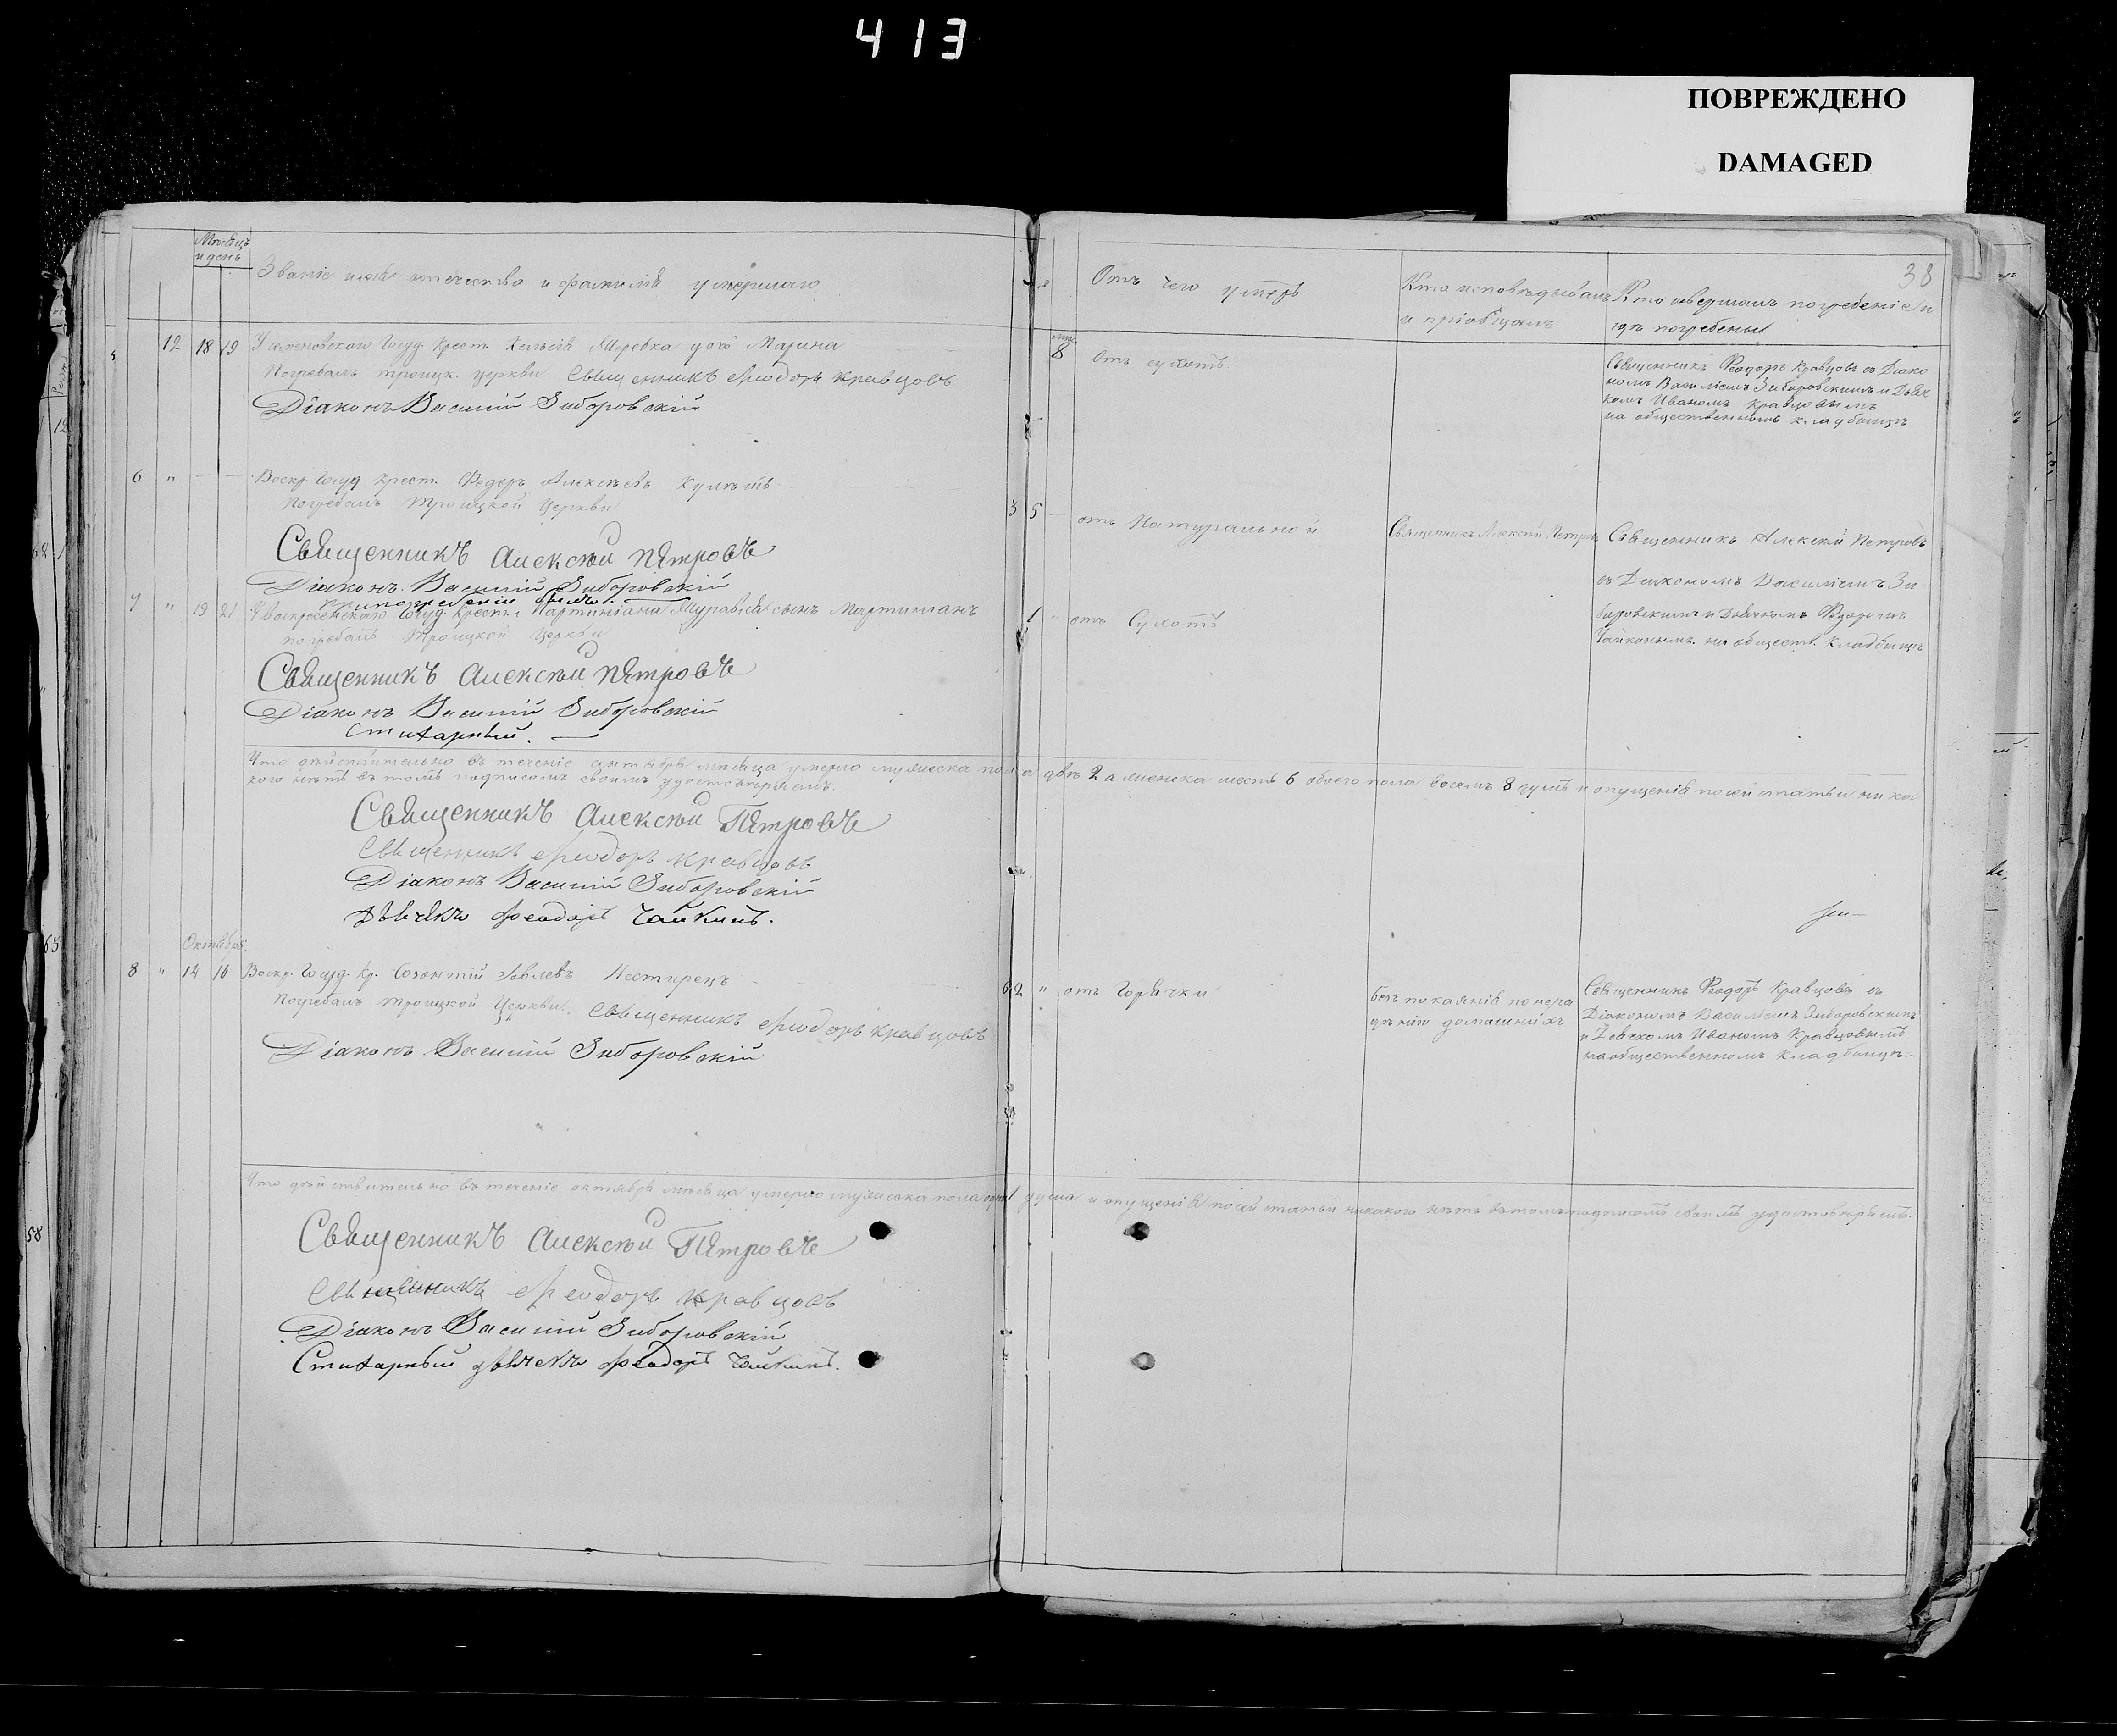 413
ПОВРЕЖДЕНО
DAMAGED
38
Мѣсяцъ
и день
Званіе имя отчество и фамилія умершаго
Отъ чего умеръ
Кто исповѣдывалъ
и пріобщалъ
Кто совершалъ погребеніе и
гдѣ погребены
12 18 19 Государ. Крест. дочь Марина
Погребалъ троицк. церкви Священникъ Феодоръ Кравцовъ
Діаконъ Василій Зиборовскій
8 Отъ сухотъ
Священникъ Феодоръ Кравцовъ съ Діако
номъ Василіемъ Зиборовскимъ и Дьяч
комъ Иваномъ Кравцовымъ
на общественномъ кладбищѣ
6 " — — Воскр. Госуд Крест. Федоръ Алексѣевъ
Погребалъ Троицкой Церкви
Священникъ Алексѣй Петровъ
Діаконъ Василій Зиборовскій
3 5 — отъ Натуральной
Священникъ Алексѣй Петровъ
Священникъ Алексѣй Петровъ
съ Діакономъ Василіемъ Зи
боровскимъ и Дьячкомъ Федоромъ
Чайкинымъ на обществ. Кладбищѣ
7 " 19 21 У воскресенскаго Госуд. Крест. Мартиніана Муравля сынъ Мартиніанъ
погребалъ Троицкой Церкви
Священникъ Алексѣй Петровъ
Діаконъ Василій Зиборовскій
Стихарный.
1 " отъ Сухотъ
Что дѣйствительно въ теченіе мѣсяца умерло мужеска пола двѣ 2 а женска шесть 6 обоего пола восемь 8 душъ и опущенія по сей статьи ника
кого нѣтъ въ томъ подписомъ своимъ удостовѣряемъ.
Священникъ Алексѣй Петровъ
Священникъ Феодоръ Кравцовъ
Діаконъ Василій Зиборовскій
Дьячекъ Феодоръ Чайкинъ.
Октябрь
8 " 14 16 Воскр. Госуд. Кр. Созонтій Нестирецъ
Погребалъ Троицкой Церкви. Священникъ Феодоръ Кравцовъ
Діаконъ Василій Зиборовскій
62 " отъ Горячки
безъ покаянія по нера
дѣнію домашнихъ
Священникъ Феодоръ Кравцовъ съ
Діакономъ Василіемъ Зиборовскимъ
и Дьячкомъ Иваномъ Кравцовымъ
на общественномъ Кладбищѣ.
Что дѣйствительно въ теченіе октября мѣсяца умерло мужеска пола одна 1 душа и опущенія по сей статьи никакого нѣтъ въ томъ подписомъ своимъ удостовѣряемъ.
Священникъ Алексѣй Петровъ
Священникъ Феодоръ Кравцовъ
Діаконъ Василій Зиборовскій
Стихарный дьячекъ Феодоръ Чайкинъ.